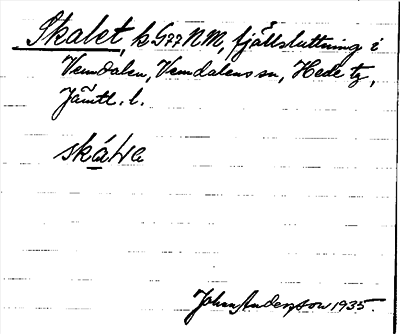 Skalet, k G77 NM, fjällsluttning i
Vemdalen, Vemdalens sn, Hede tg,
Jämtl. l.
Johan Anderzon 1935.